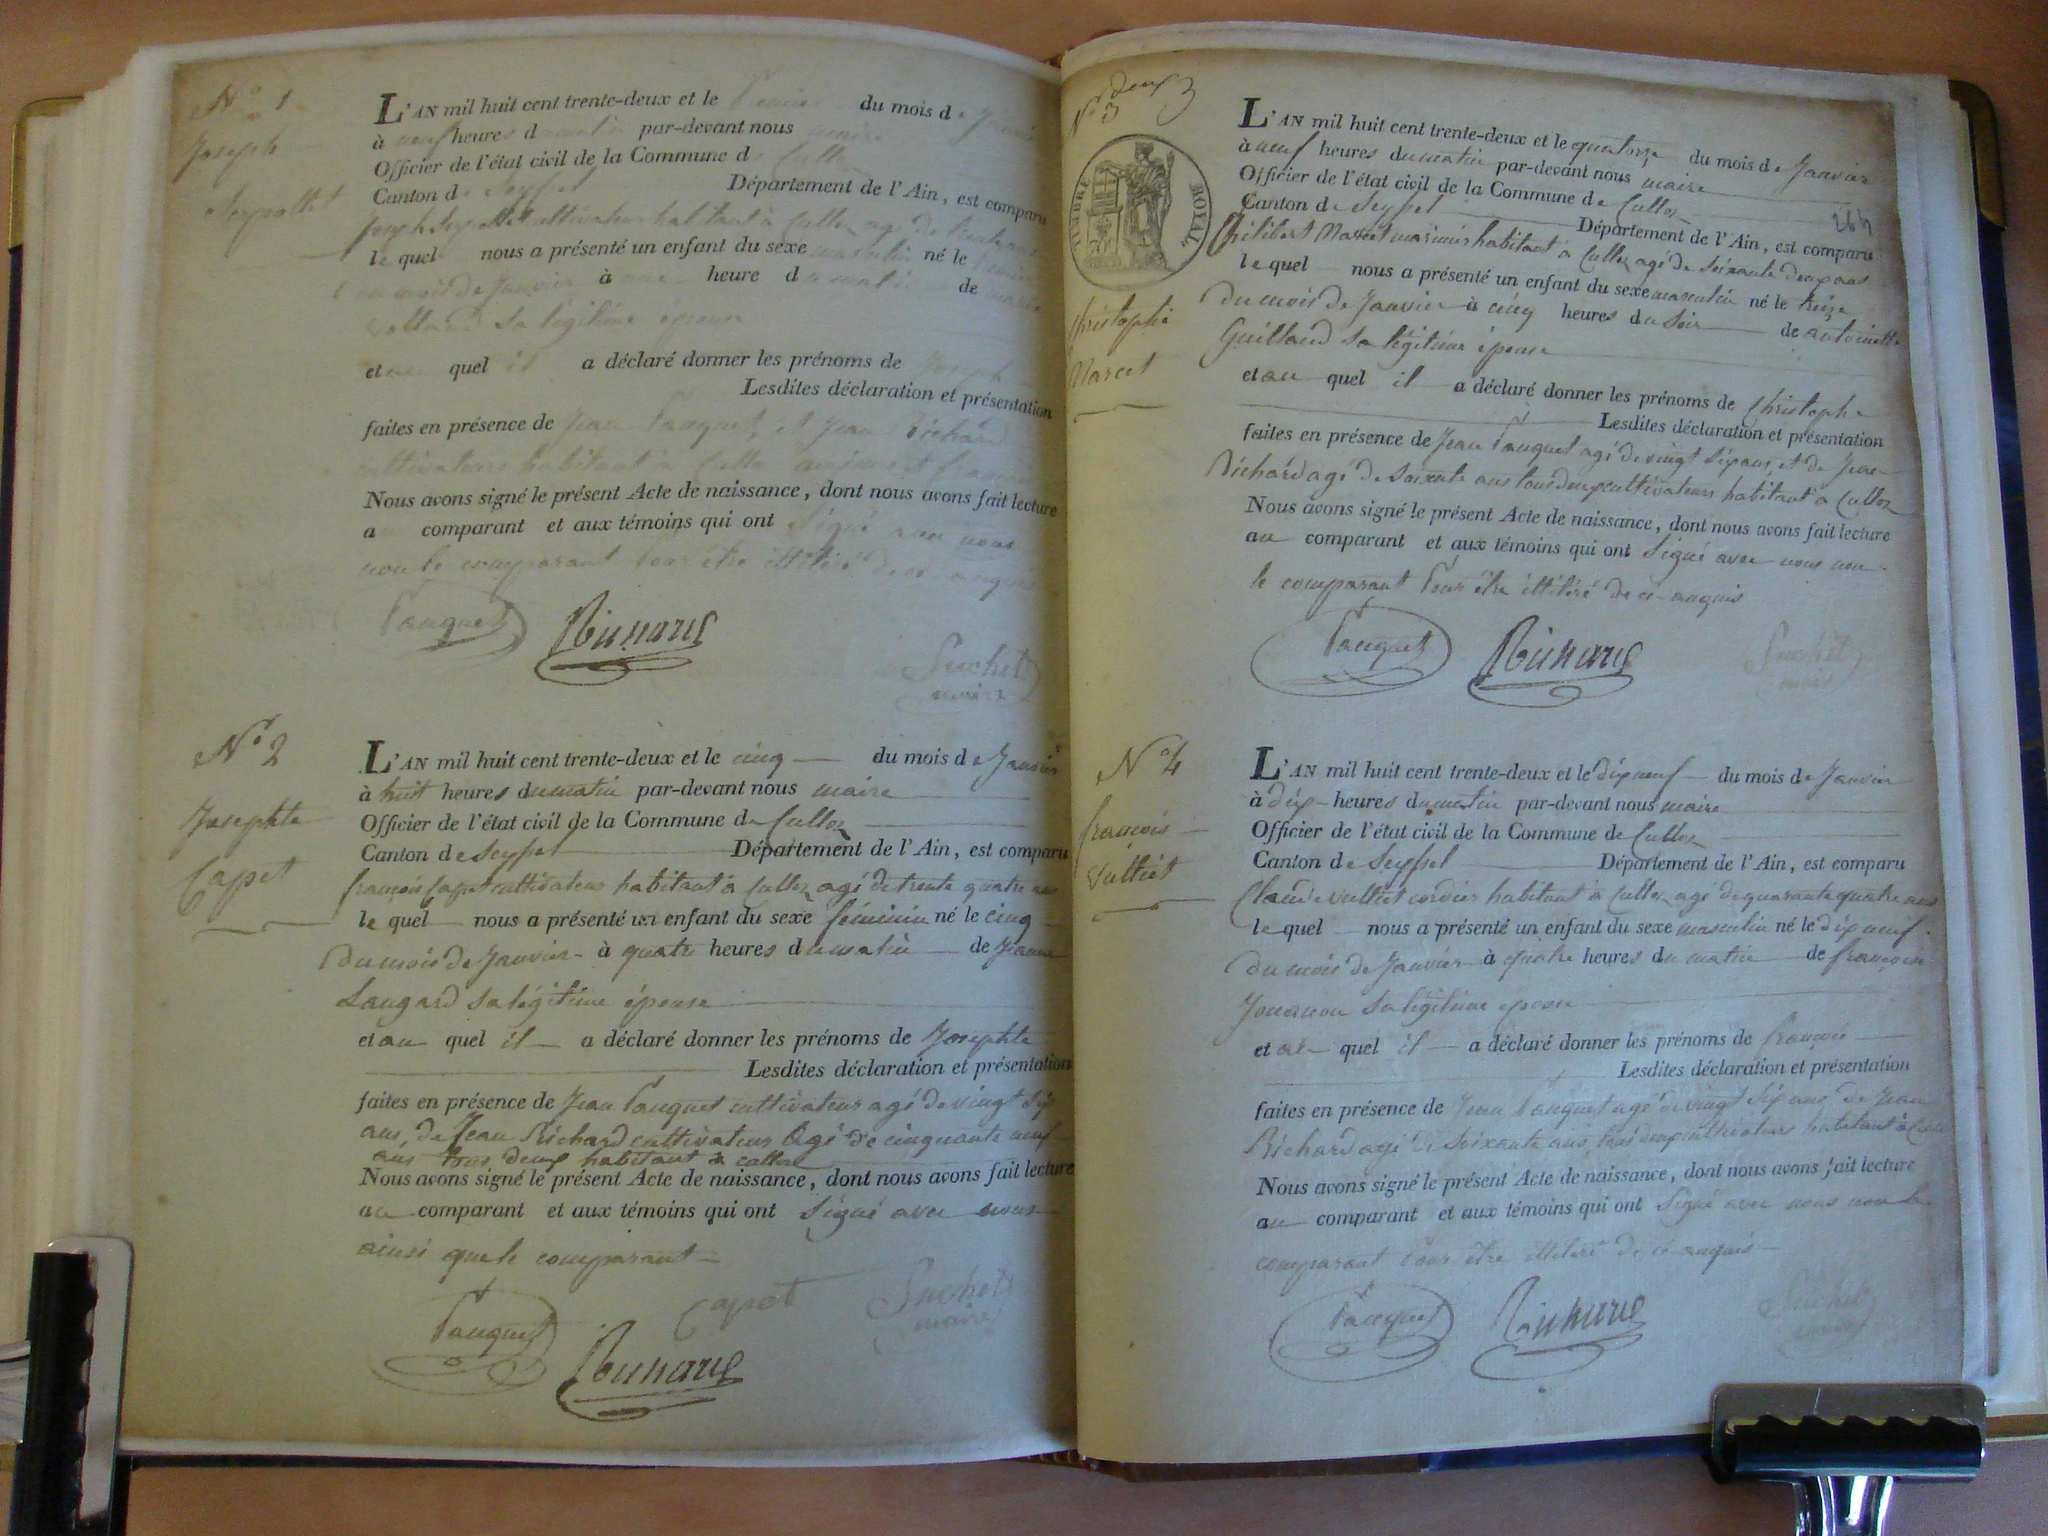 N.° 1
Joseph
L'AN mil huit cent trente-deux et le du mois d
à neuf heures d matin par-devant nous maire
Officier de l'état civil de la Commune d
Canton de Seyssel Département de l'Ain, est comparu
Joseph cultivateur habitant à Culloz agé de
le quel nous a présenté un enfant du sexe masculin né le
du mois de Janvier à heure du matin de
sa légitime épouse
et au quel il a déclaré donner les prénoms de Joseph
Lesdites déclaration et présentation
faites en présence de Jean Pauquet, et Jean Richard
cultivateurs habitant à Culloz
Nous avons signé le présent Acte de naissance, dont nous avons fait lecture
a comparant et aux témoins qui ont Signé avec nous
non le comparant pour être illitéré de ce enquis
Pauquet Richard
Suchet
maire
N.° 2
Josephte
Capet
L'AN mil huit cent trente-deux et le cinq du mois de Janvier
à huit heures du matin par-devant nous maire
Officier de l'état civil de la Commune de Culloz
Canton de Seyssel Département de l'Ain, est comparu
françois Capet cultivateur habitant à Culloz agé de trente quatre ans
le quel nous a présenté un enfant du sexe féminin né le cinq
du mois de Janvier à quatre heures du matin de Jeanne
Laugard sa légitime épouse
et au quel il a déclaré donner les prénoms de Josephte
Lesdites déclaration et présentation
faites en présence de Jean Pauquet cultivateur agé de vingt six
ans, de Jean Richard cultivateur Agé de cinquante neuf
ans tous deux habitant à culloz
Nous avons signé le présent Acte de naissance, dont nous avons fait lecture
au comparant et aux témoins qui ont Signé avec nous
ainsi que le comparant
Pauquet Capet Suchet
maire
Richard
deux
N.° 3
TIMBRE ROYAL
264
Christophe
Marcet
L'AN mil huit cent trente-deux et le quatorze du mois de Janvier
à neuf heures du matin par-devant nous maire
Officier de l'état civil de la Commune de Culloz
Canton de Seyssel Département de l'Ain, est comparu
Philibert Marcet marinier habitant à Culloz agé de soixante deux ans
le quel nous a présenté un enfant du sexe masculin né le treize
du mois de Janvier à cinq heures du soir de antoinette
Guilland sa légitime épouse
et au quel il a déclaré donner les prénoms de Christophe
Lesdites déclaration et présentation
faites en présence de Jean Pauquet agé de vingt six ans, et de Jean
Richard agé de soixante ans tous deux cultivateurs habitant à Culloz
Nous avons signé le présent Acte de naissance, dont nous avons fait lecture
au comparant et aux témoins qui ont Signé avec nous non
le comparant Pour être illitéré de ce enquis
Pauquet Richard Suchet
maire
N.° 4
françois
Vulliet
L'AN mil huit cent trente-deux et le dix neuf du mois de Janvier
à dix heures du matin par-devant nous maire
Officier de l'état civil de la Commune de Culloz
Canton de Seyssel Département de l'Ain, est comparu
Claude vulliet cordier habitant à Culloz agé de quarante quatre ans
le quel nous a présenté un enfant du sexe masculin né le dix neuf
du mois de Janvier à quatre heures du matin de françoise
sa légitime épouse
et au quel il a déclaré donner les prénoms de françois
Lesdites déclaration et présentation
faites en présence de Jean Pauquet agé de vingt six ans, de Jean
Richard agé de soixante ans, tous deux cultivateurs habitant à Culloz
Nous avons signé le présent Acte de naissance, dont nous avons fait lecture
au comparant et aux témoins qui ont Signé avec nous non le
comparant Pour être illitéré de ce enquis
Pauquet Richard Suchet
maire